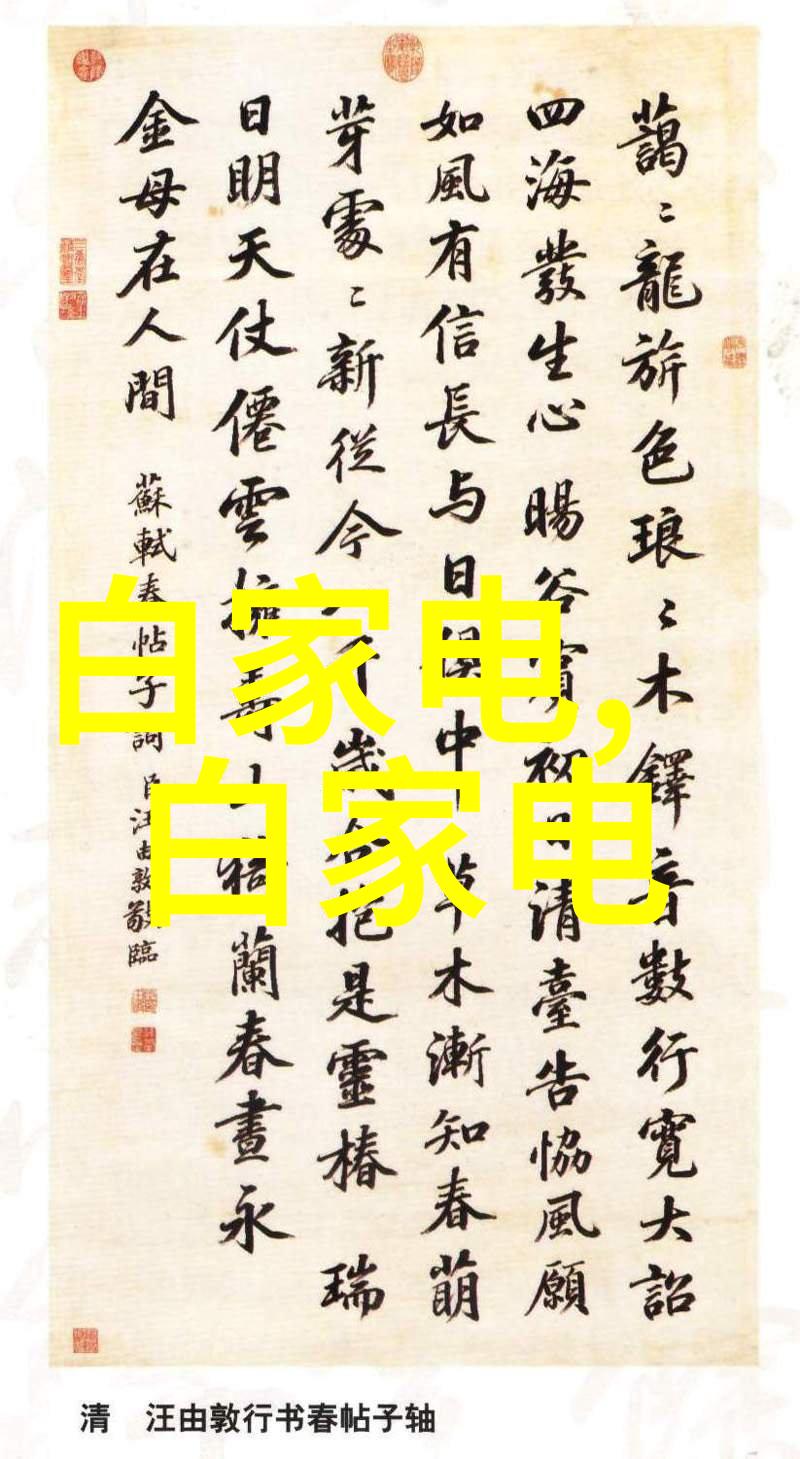 藹〻龍旂色琅〻木鐸音數行寬大詔
四海發生心 暘谷賓初日清臺告協風願
如風有信長与日俱中 草木漸知春萌
芽處〻新從今千歲合抱是靈椿 瑞
日明天仗僊雲擁壽猗蘭春晝永
金母在人間 蘇軾春帖子詞 臣汪由敦敬臨
白家电,
白家电
清 汪由敦行书春帖子轴